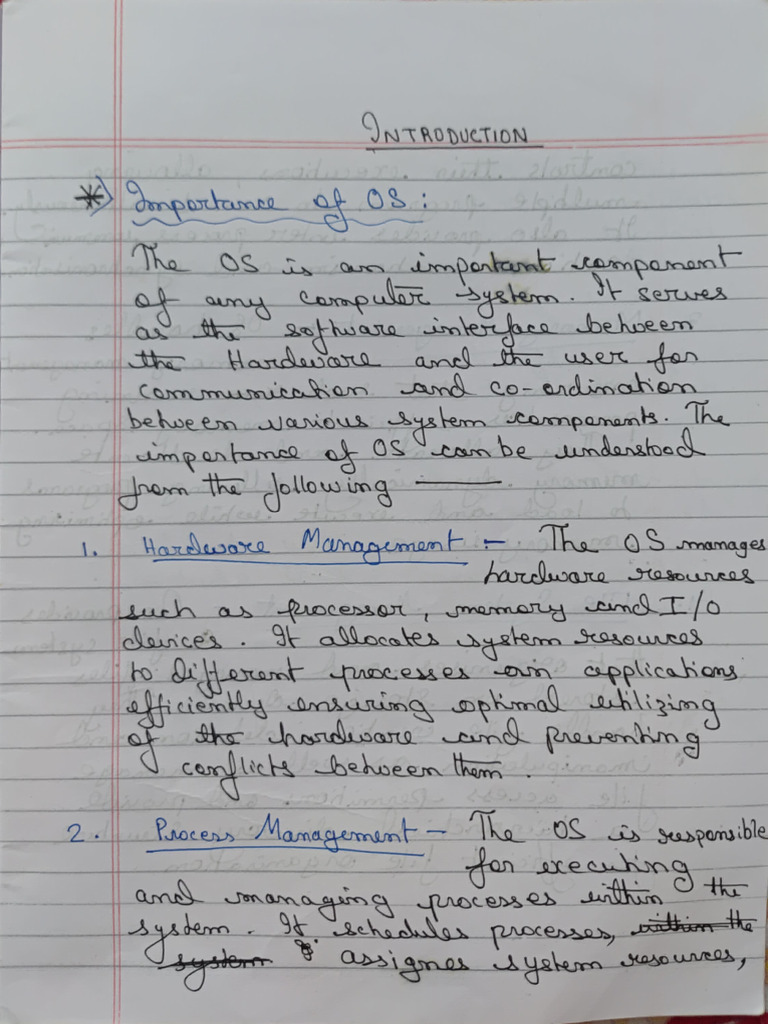 INTRODUCTION
*) Importance of OS :
The OS is an important component
of any computer system. It serves
as the software interface between
the Hardware and the user for
communication and co-ordination
between various system components. The
importance of OS can be understood
from the following ——
1. Hardware Management :- The OS manages
hardware resources
such as processor, memory and I/O
devices. It allocates system resources
to different processes on applications
efficiently ensuring optimal utilizing
of the hardware and preventing
conflicts between them.
2. Process Management - The OS is responsible
for executing
and managing processes within the
system. It schedules processes, within the
system assignes system resources,